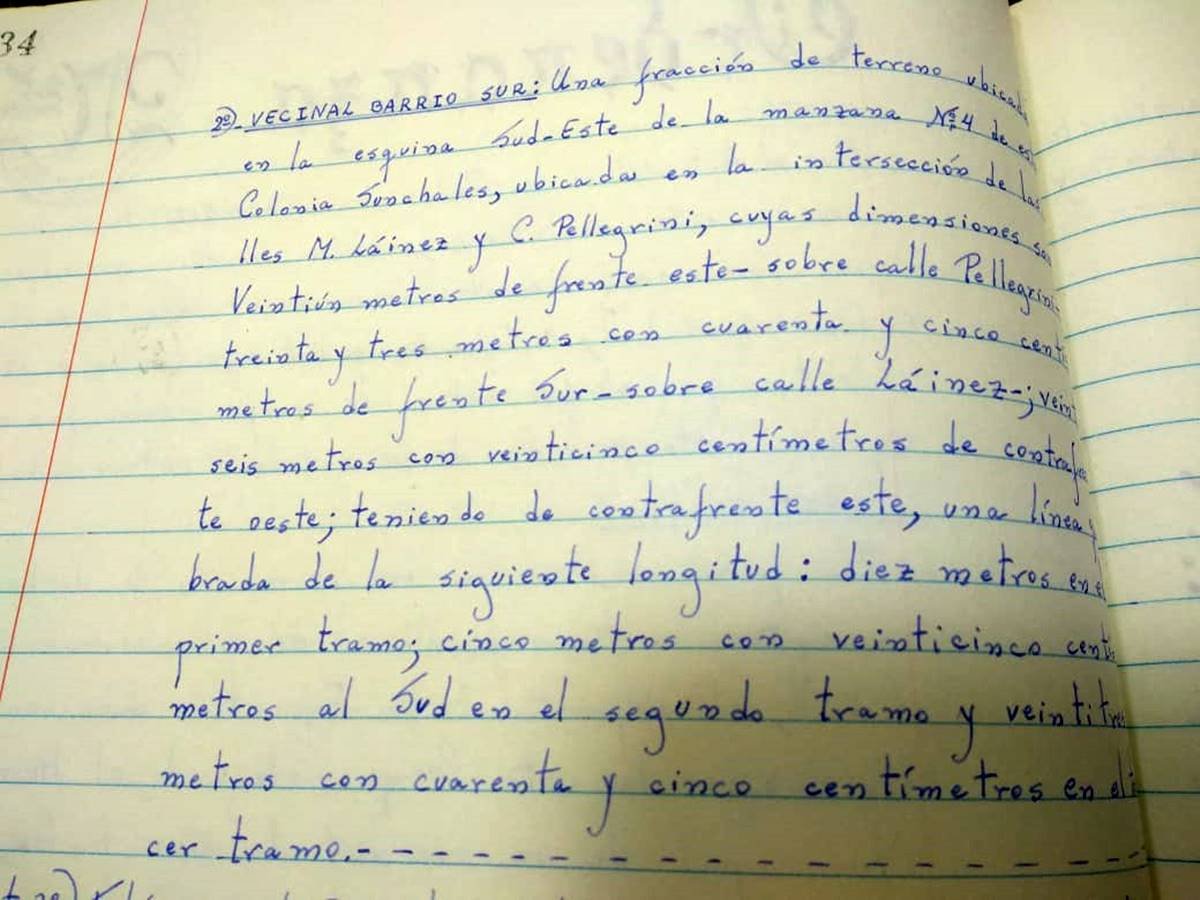 34
2º) VECINAL BARRIO SUR: Una fracción de terreno ubicad
en la esquina Sud-Este de la manzana Nº 4 de es
Colonia Sunchales, ubicada en la intersección de las
lles M. Láinez y C. Pellegrini, cuyas dimensiones son
Veintiún metros de frente este- sobre calle Pellegrini-
treinta y tres metros con cuarenta y cinco centí
metros de frente Sur-sobre calle Láinez-; veint
seis metros con veinticinco centímetros de contrafren
te oeste; teniendo de contrafrente este, una línea q
brada de la siguiente longitud: diez metros en el
primer tramo; cinco metros con veinticinco centí
metros al Sud en el segundo tramo y veintitres
metros con cuarenta y cinco centímetros en el
cer tramo.- - - - - - - - - - - - - - - - - -